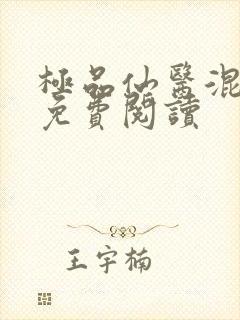 極品仙醫混
免費閱讀
王宇楠